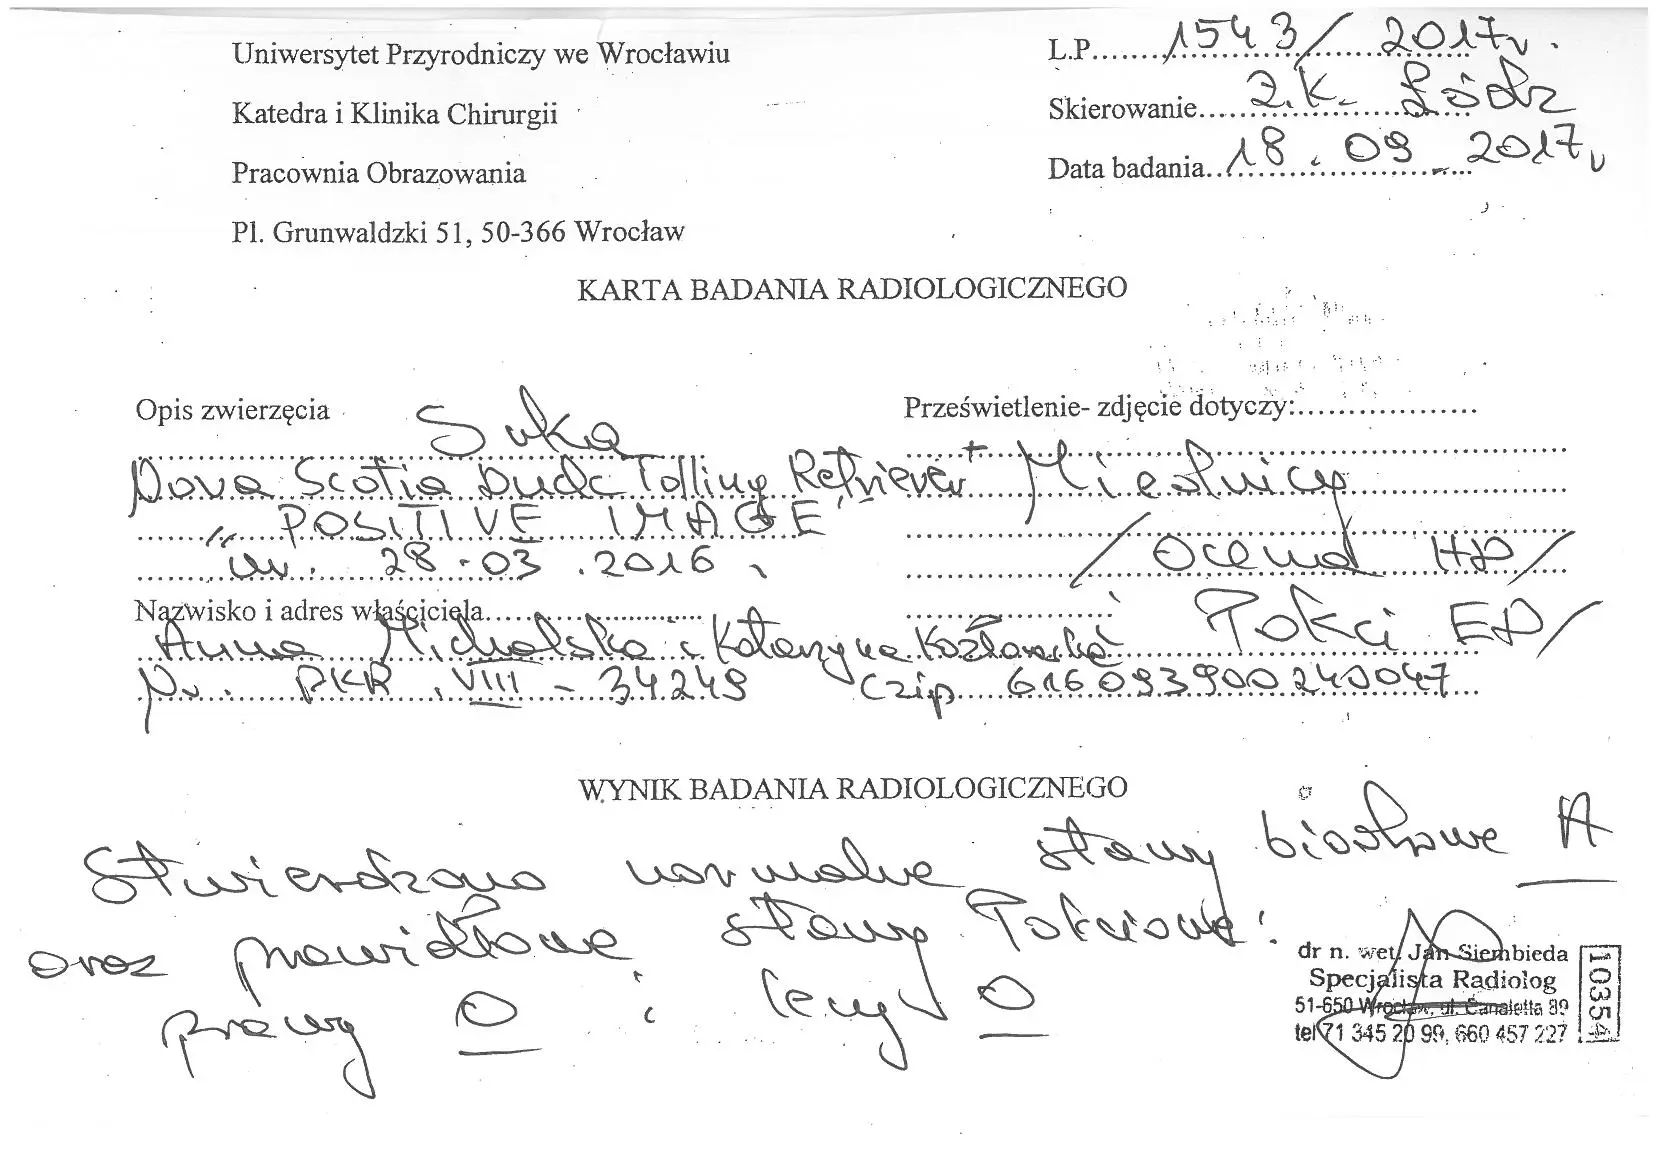 Uniwersytet Przyrodniczy we Wrocławiu
Katedra i Klinika Chirurgii
Pracownia Obrazowania
Pl. Grunwaldzki 51, 50-366 Wrocław
L.P. 1543/2017r.
Skierowanie Z.K. Łódź
Data badania 18.09.2017r
KARTA BADANIA RADIOLOGICZNEGO
Opis zwierzęcia Suka
Nova Scotia Duck Tolling Retriever
„POSITIVE IMAGE"
ur. 28.03.2016r
Prześwietlenie- zdjęcie dotyczy:
Miednicy
/Ocena HD/
Łokci ED/
Nazwisko i adres właściciela
Anna Michalska i Katarzyna Kozłowska
Nr. PKR.VIII-34249 Czip 616093900240047
WYNIK BADANIA RADIOLOGICZNEGO
Stwierdzono normalne stawy biodrowe A
oraz prawidłowe stawy łokciowe:
prawy 0 i lewy 0
dr n. wet. Jan Siembieda
Specjalista Radiolog
51-650 Wrocław, ul. Canaletta 89
tel 71 345 20 99, 660 457 227
10354